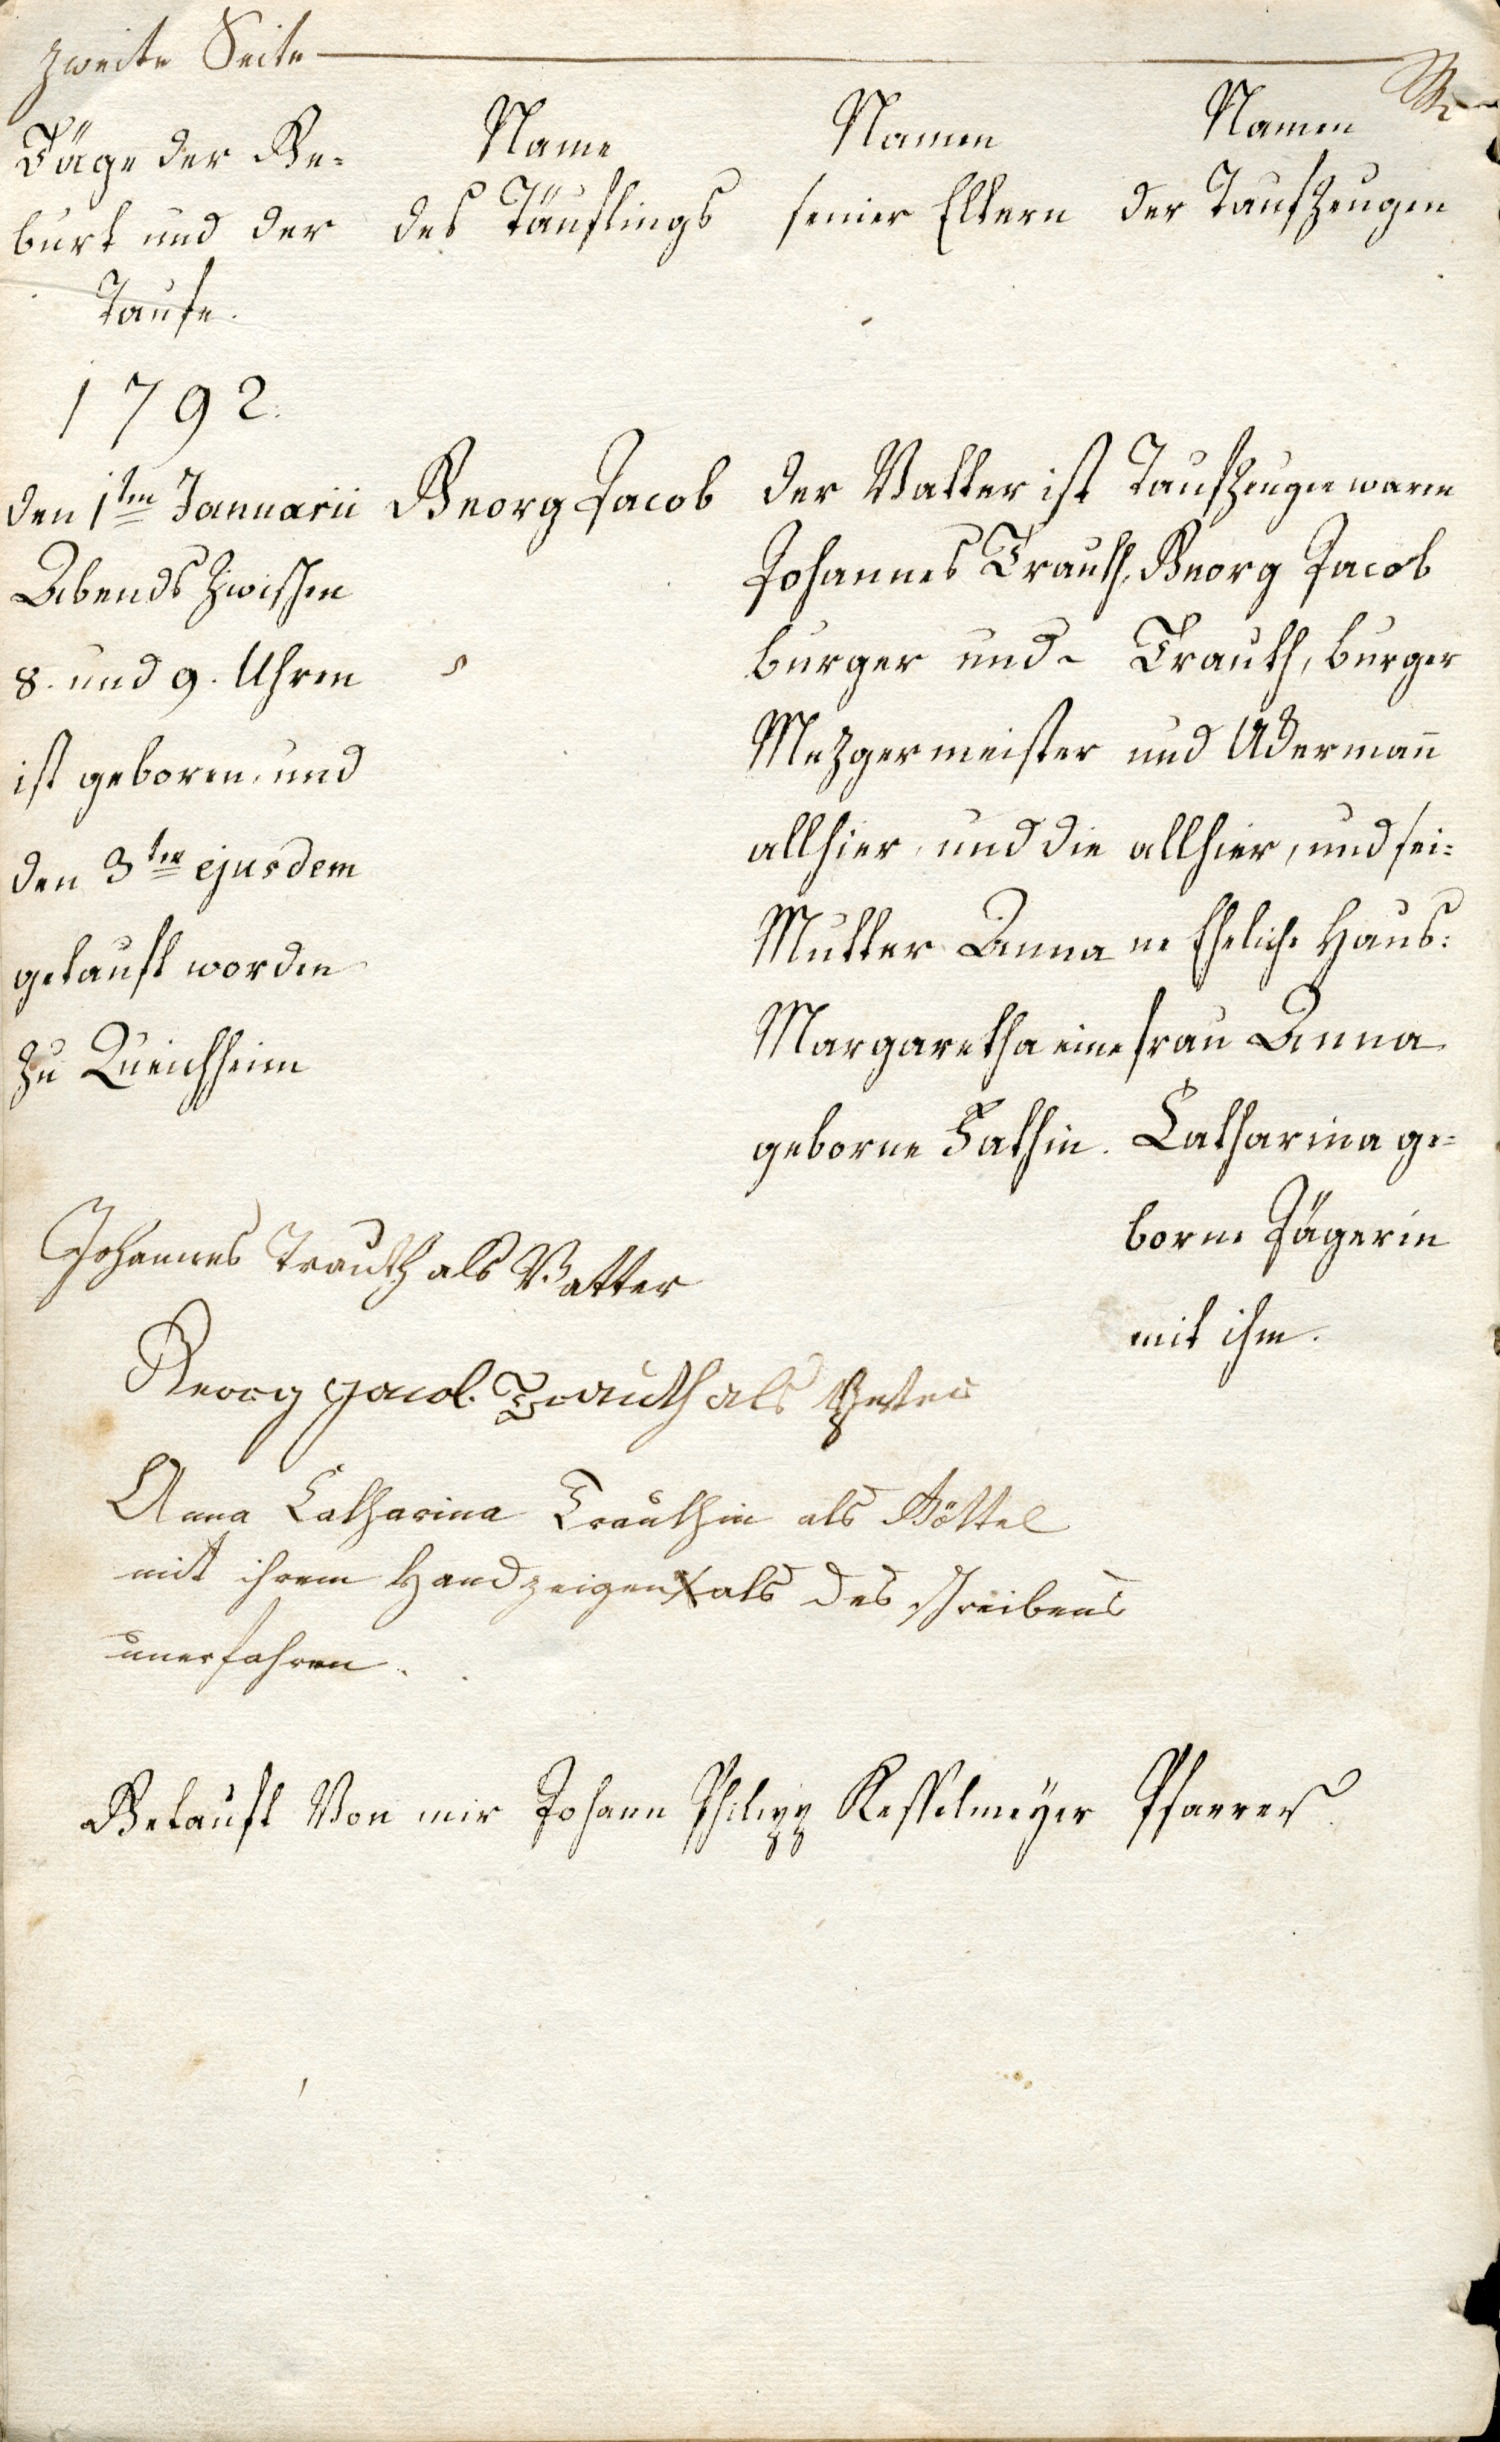 zweite Seite
Täge der Ge-
burt und der
Taufe.
Name
des Täuflings
Namen
seiner Eltern
Namen
der Taufzeugen
1792.
den 1ten Januarii
Abends zwischen
8. und 9. Uhren
ist geboren, und
den 3ten ejusdem
getauft worden
zu Queichheim
Georg Jacob
der Vatter ist
Johannes Trauth,
burger und
Mezgermeister
allhier, und die
Mutter Anna
Margaretha eine
geborne Fathin.
Taufzeugen waren
Georg Jacob
Trauth, burger
und Ackermann
allhier, und sei-
ne Eheliche Haus-
frau Anna
Catharina ge-
borne Jägerin
mit ihm.
Johannes Trauth als Vatter
Georg Jacob Trauth als
Anna Catharina Trauthin als Göttel
mit ihrem Handzeigen X als des schreibens
unerfahren.
Getauft von mir Johann Philipp Kesselmeyer Pfarrer.